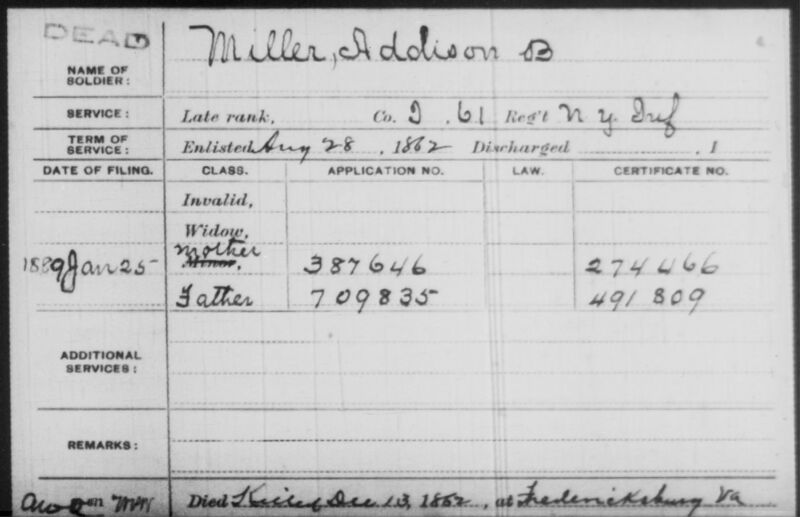 DEAD
Miller, Addison B
NAME OF SOLDIER:
SERVICE: Late rank, Co. I, 61 Reg't N Y. Inf
TERM OF SERVICE: Enlisted Aug 28, 1862 Discharged , 1
DATE OF FILING. CLASS. APPLICATION NO. LAW. CERTIFICATE NO.
Invalid,
Widow,
1889 Jan 25 Mother Minor, 387646 274466
Father 709835 491809
ADDITIONAL SERVICES:
REMARKS:
Died Killed Dec 13, 1862, at Fredericksburg Va